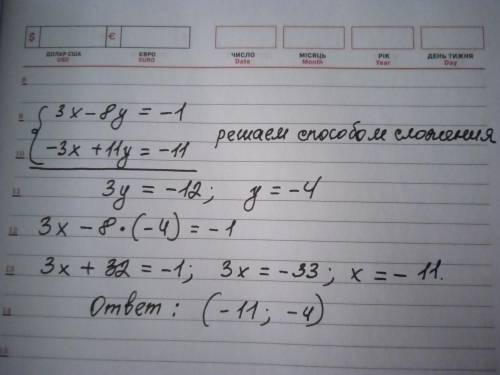 $ €
ДОЛАР США ЄВРО ЧИСЛО МІСЯЦЬ РІК ДЕНЬ ТИЖНЯ
USD EURO Date Month Year Day
8
9 3x - 8y = -1
решаем способом сложения
10 -3x + 11y = -11
11 3y = -12; y = -4
12 3x - 8 · (-4) = -1
13 3x + 32 = -1; 3x = -33; x = - 11.
14 Ответ: (-11; -4)